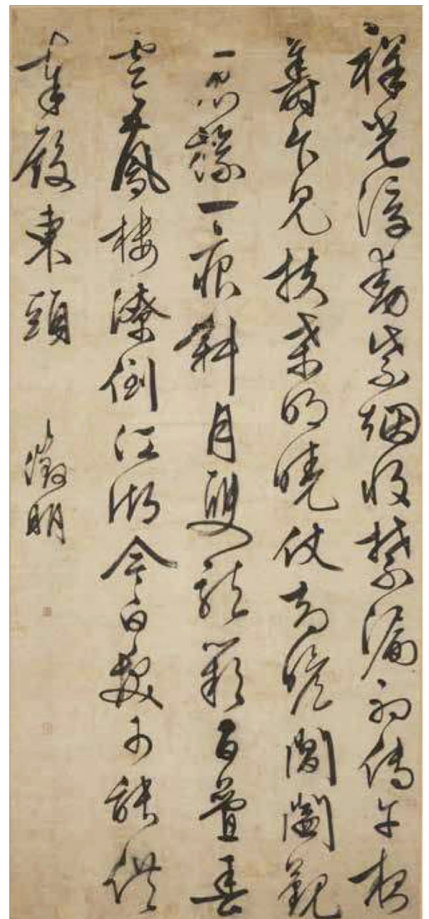 祥光浮動紫烟收禁漏初傳午夜
籌乍見扶桑明曉仗瞻閶闔覲
宸旒一痕斜月雙龍百疊春
雲五鳳樓潦倒江湖今白髮可能供
奉殿東頭 徵明